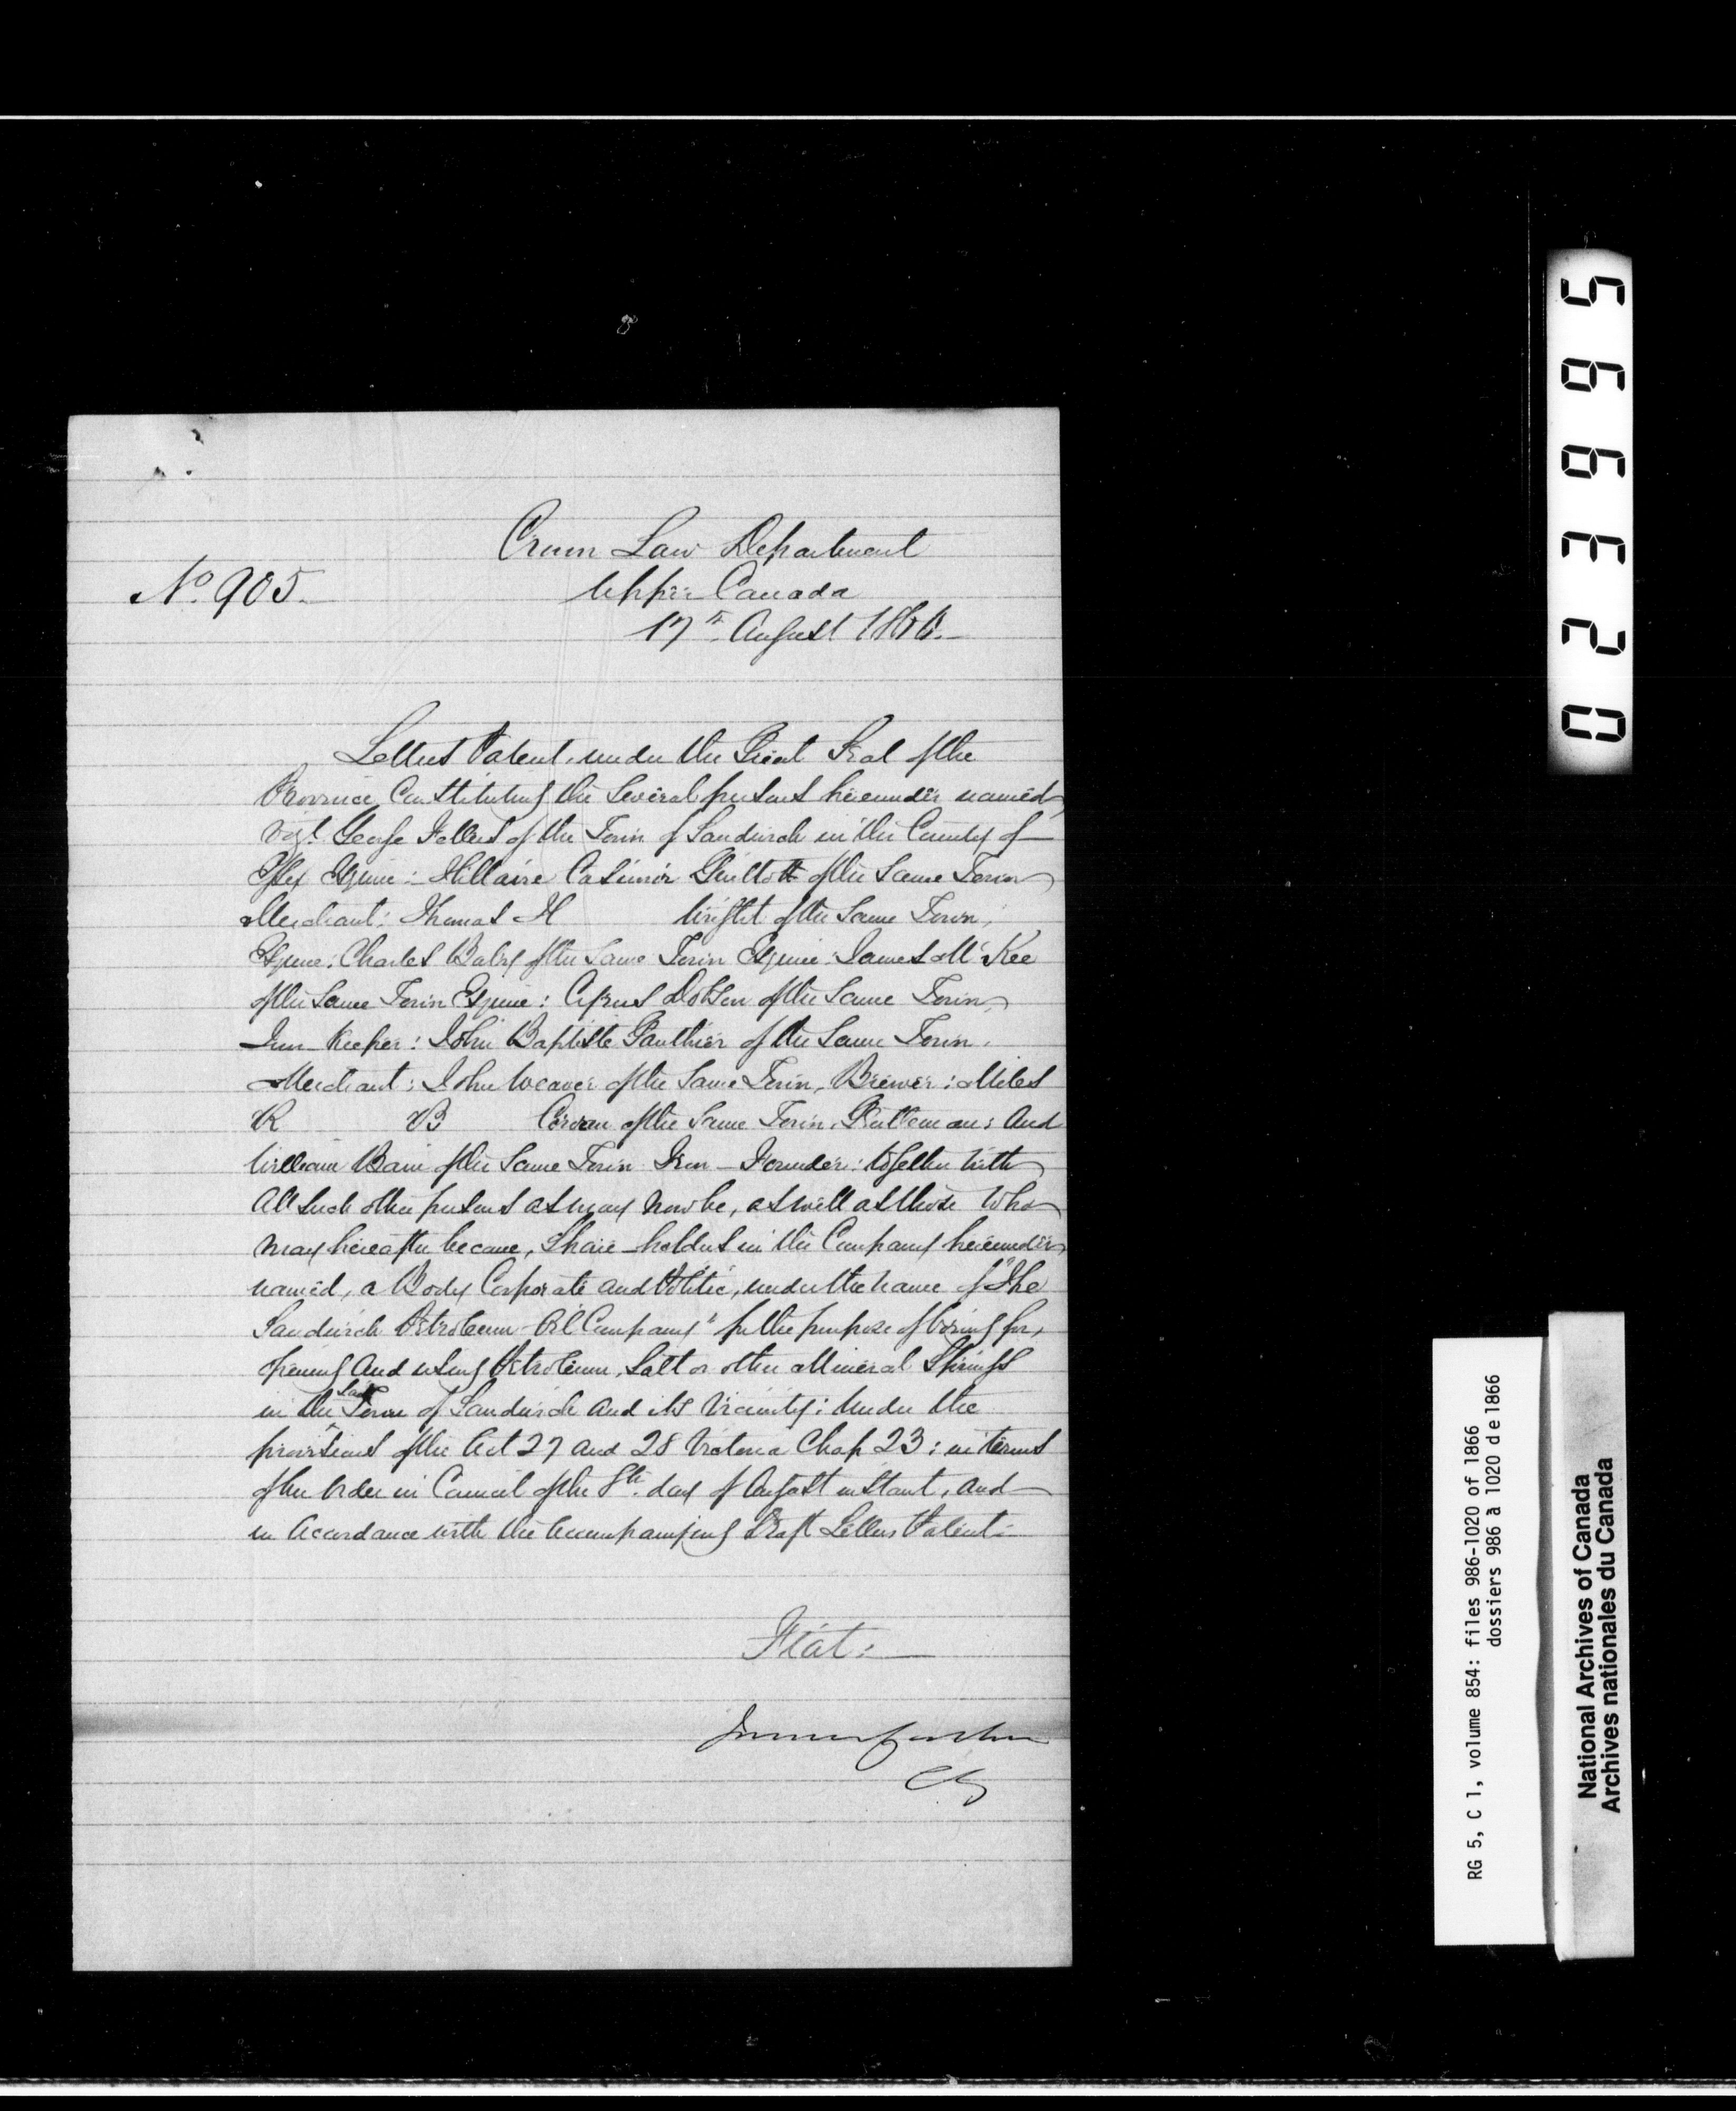 Crown Law Department
No. 905.
Upper Canada
17th August 1866.
Letters Patent, under the Great Seal of the
Province Constituting the Several persons hereunder named,
vizt. George of the Town of Sandwich in the County of
Essex Esquire: Hillaire Casimir Guillott of the Same Town
Merchant: Thomas H Wright of the Same Town,
Esquire: Charles Baby of the Same Town Esquire: James McKee
of the Same Town Esquire: Cyrus Dobson of the Same Town,
Inn-Keeper: John Baptiste Gauthier of the Same Town,
Merchant: John Weaver of the Same Town, Brewer: Miles
R B Cowan of the Same Town, Gentleman: And
William Bain of the Same Town Iron-Founder: together with
All Such other persons as may now be, as well as those who
may hereafter become, Share-holders in the Company hereunder
named, a Body Corporate and Politic, under the name of "The
Sandwich Petroleum Oil Company" for the purpose of boring for,
opening and using Petroleum, Salt or other Mineral Springs
in the Said Town of Sandwich and its Vicinity: Under the
provisions of the Act 27 and 28 Victoria Chap 23: in terms
of the Order in Council of the 8th. day of August instant, and
in accordance with the accompanying Draft Letters Patent.
Fiat:
56632 0
RG 5, C 1, volume 854: files 986-1020 of 1866
dossiers 986 à 1020 de 1866
National Archives of Canada
Archives nationales du Canada